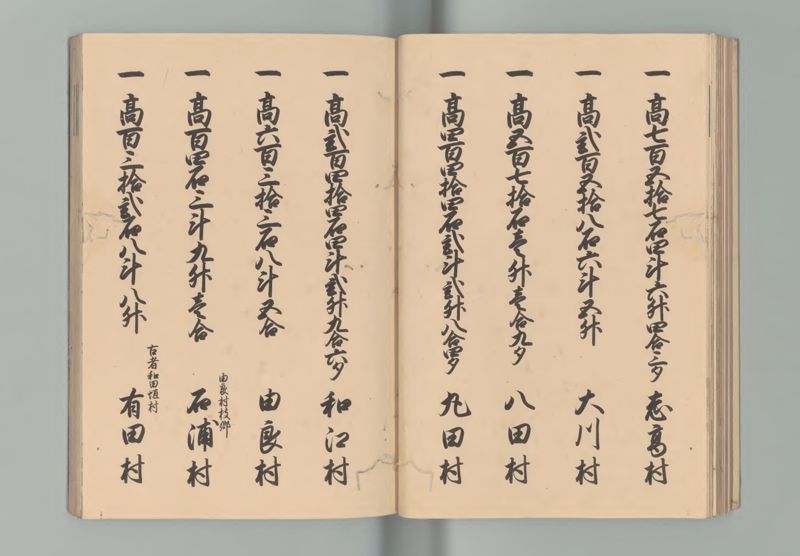 一 高七百五拾七石四斗六升四合三夕 志高村
一 高弐百五拾八石六斗五升 大川村
一 高五百七拾石壱升壱合九夕 八田村
一 高四百四拾四石弐斗弐升八合四夕 丸田村
一 高弐百四拾四石四斗弐升九合六夕 和江村
一 高六百三拾三石八斗五合 由良村
由良村枝郷
一 高百四石三斗九升壱合 石浦村
古者和田垣村
一 高百三拾弐石八斗八升 有田村